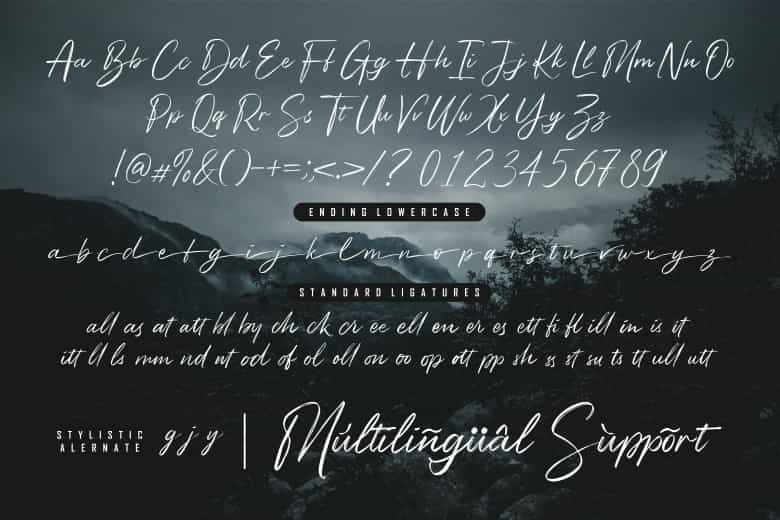 Aa Bb Cc Dd Ee Ff Gg Hh Ii Jj Kk Ll Mm Nn Oo
Pp Qq Rr Ss Tt Uu Vv Ww Xx Yy Zz
!@#%&()-+=:;<.>/? 0123456789
ENDING LOWERCASE
a b c d e f g i j k l m n o p q r s t u v w x y z
STANDARD LIGATURES
all as at att bl by ch ck cr ee ell en er es ett fi fl ill in is it
itt ll ls mm nd nt od of ol oll on oo op ott pp sh ss st su ts tt ull utt
STYLISTIC
ALERNATE
g j y
Múltilingüâl Sùppõrt